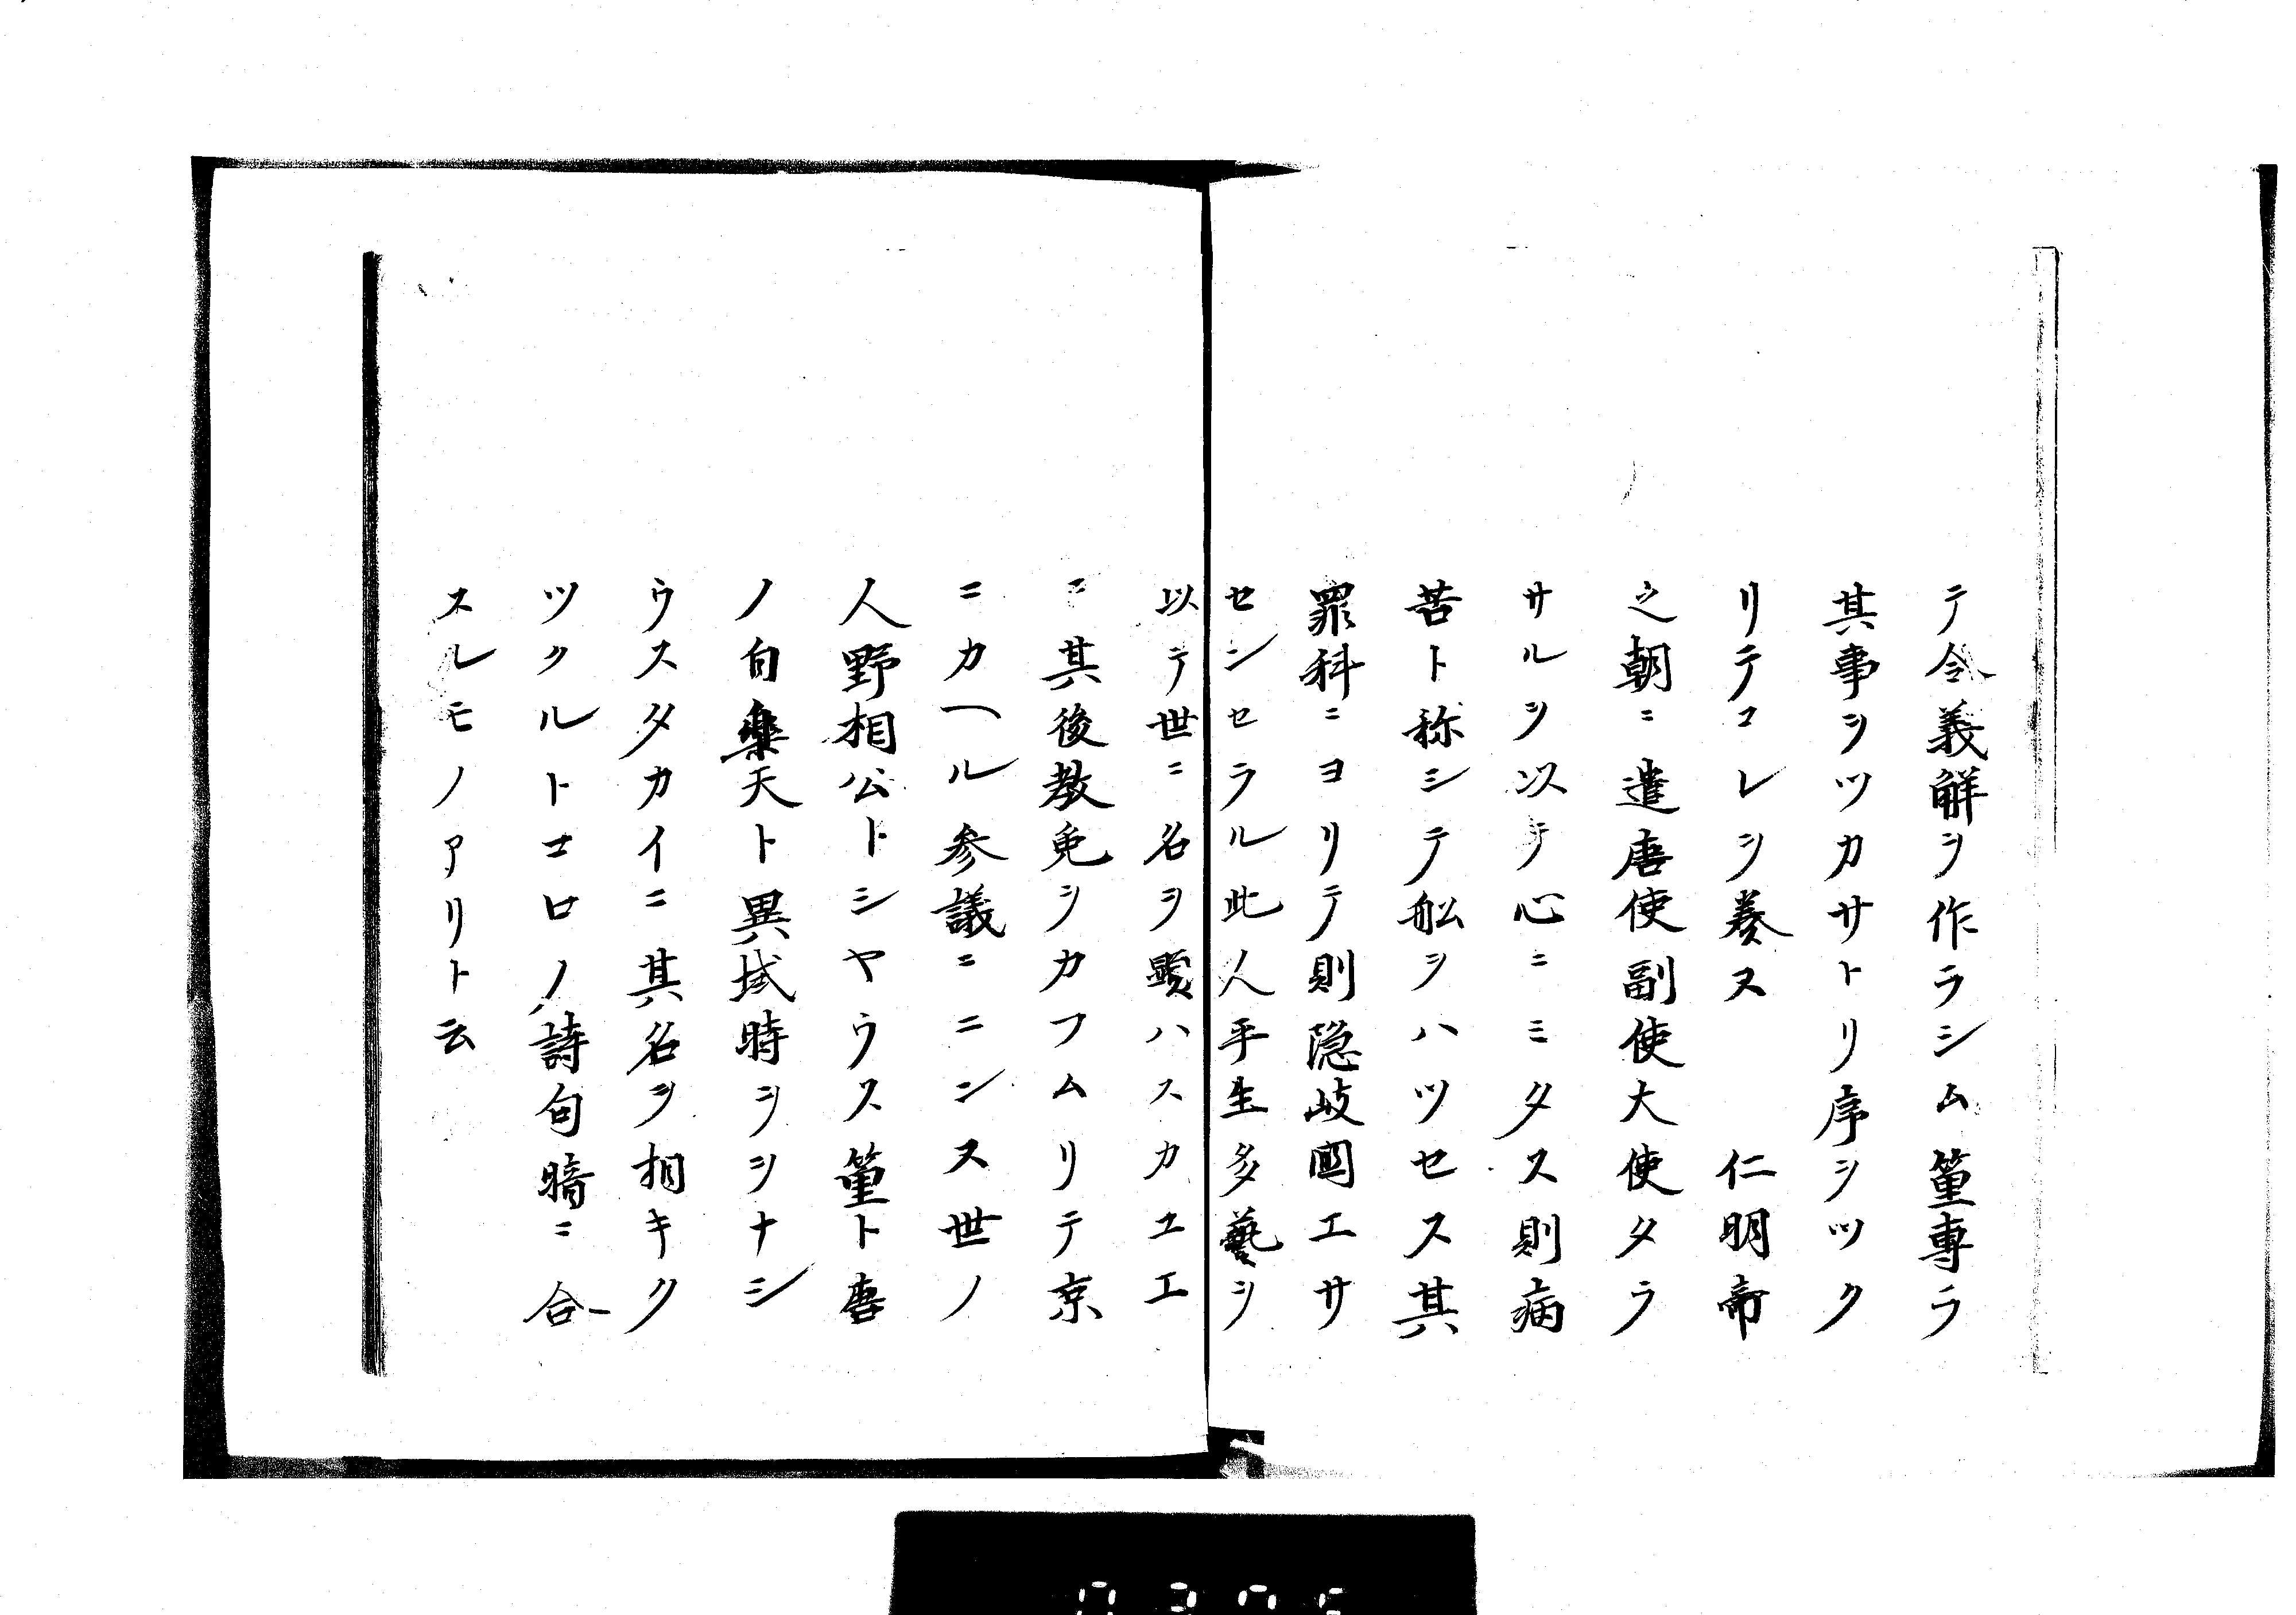 テ令義解ヲ作ラシム篁專ラ
其事ヲツカサトリ序ヲツク
リテコレヲ奏ス　仁明帝
之朝ニ遣唐使副使大使タラ
サルヲ以テ心ニミタス則病
苦ト称シテ船ヲハツセス其
罪科ニヨリテ則隠岐國エサ
センセラル此人平生多藝ヲ
以テ世ニ名ヲ顕ハスカユエ
ニ其後赦免ヲカフムリテ京
ニカヘル参議ニニンス世ノ
人野相公トシヤウス篁ト唐
ノ白樂天ト異域時ヲヲナシ
ウスタカイニ其名ヲ相キク
ツクルトコロノ詩句暗ニ合
スルモノアリト云